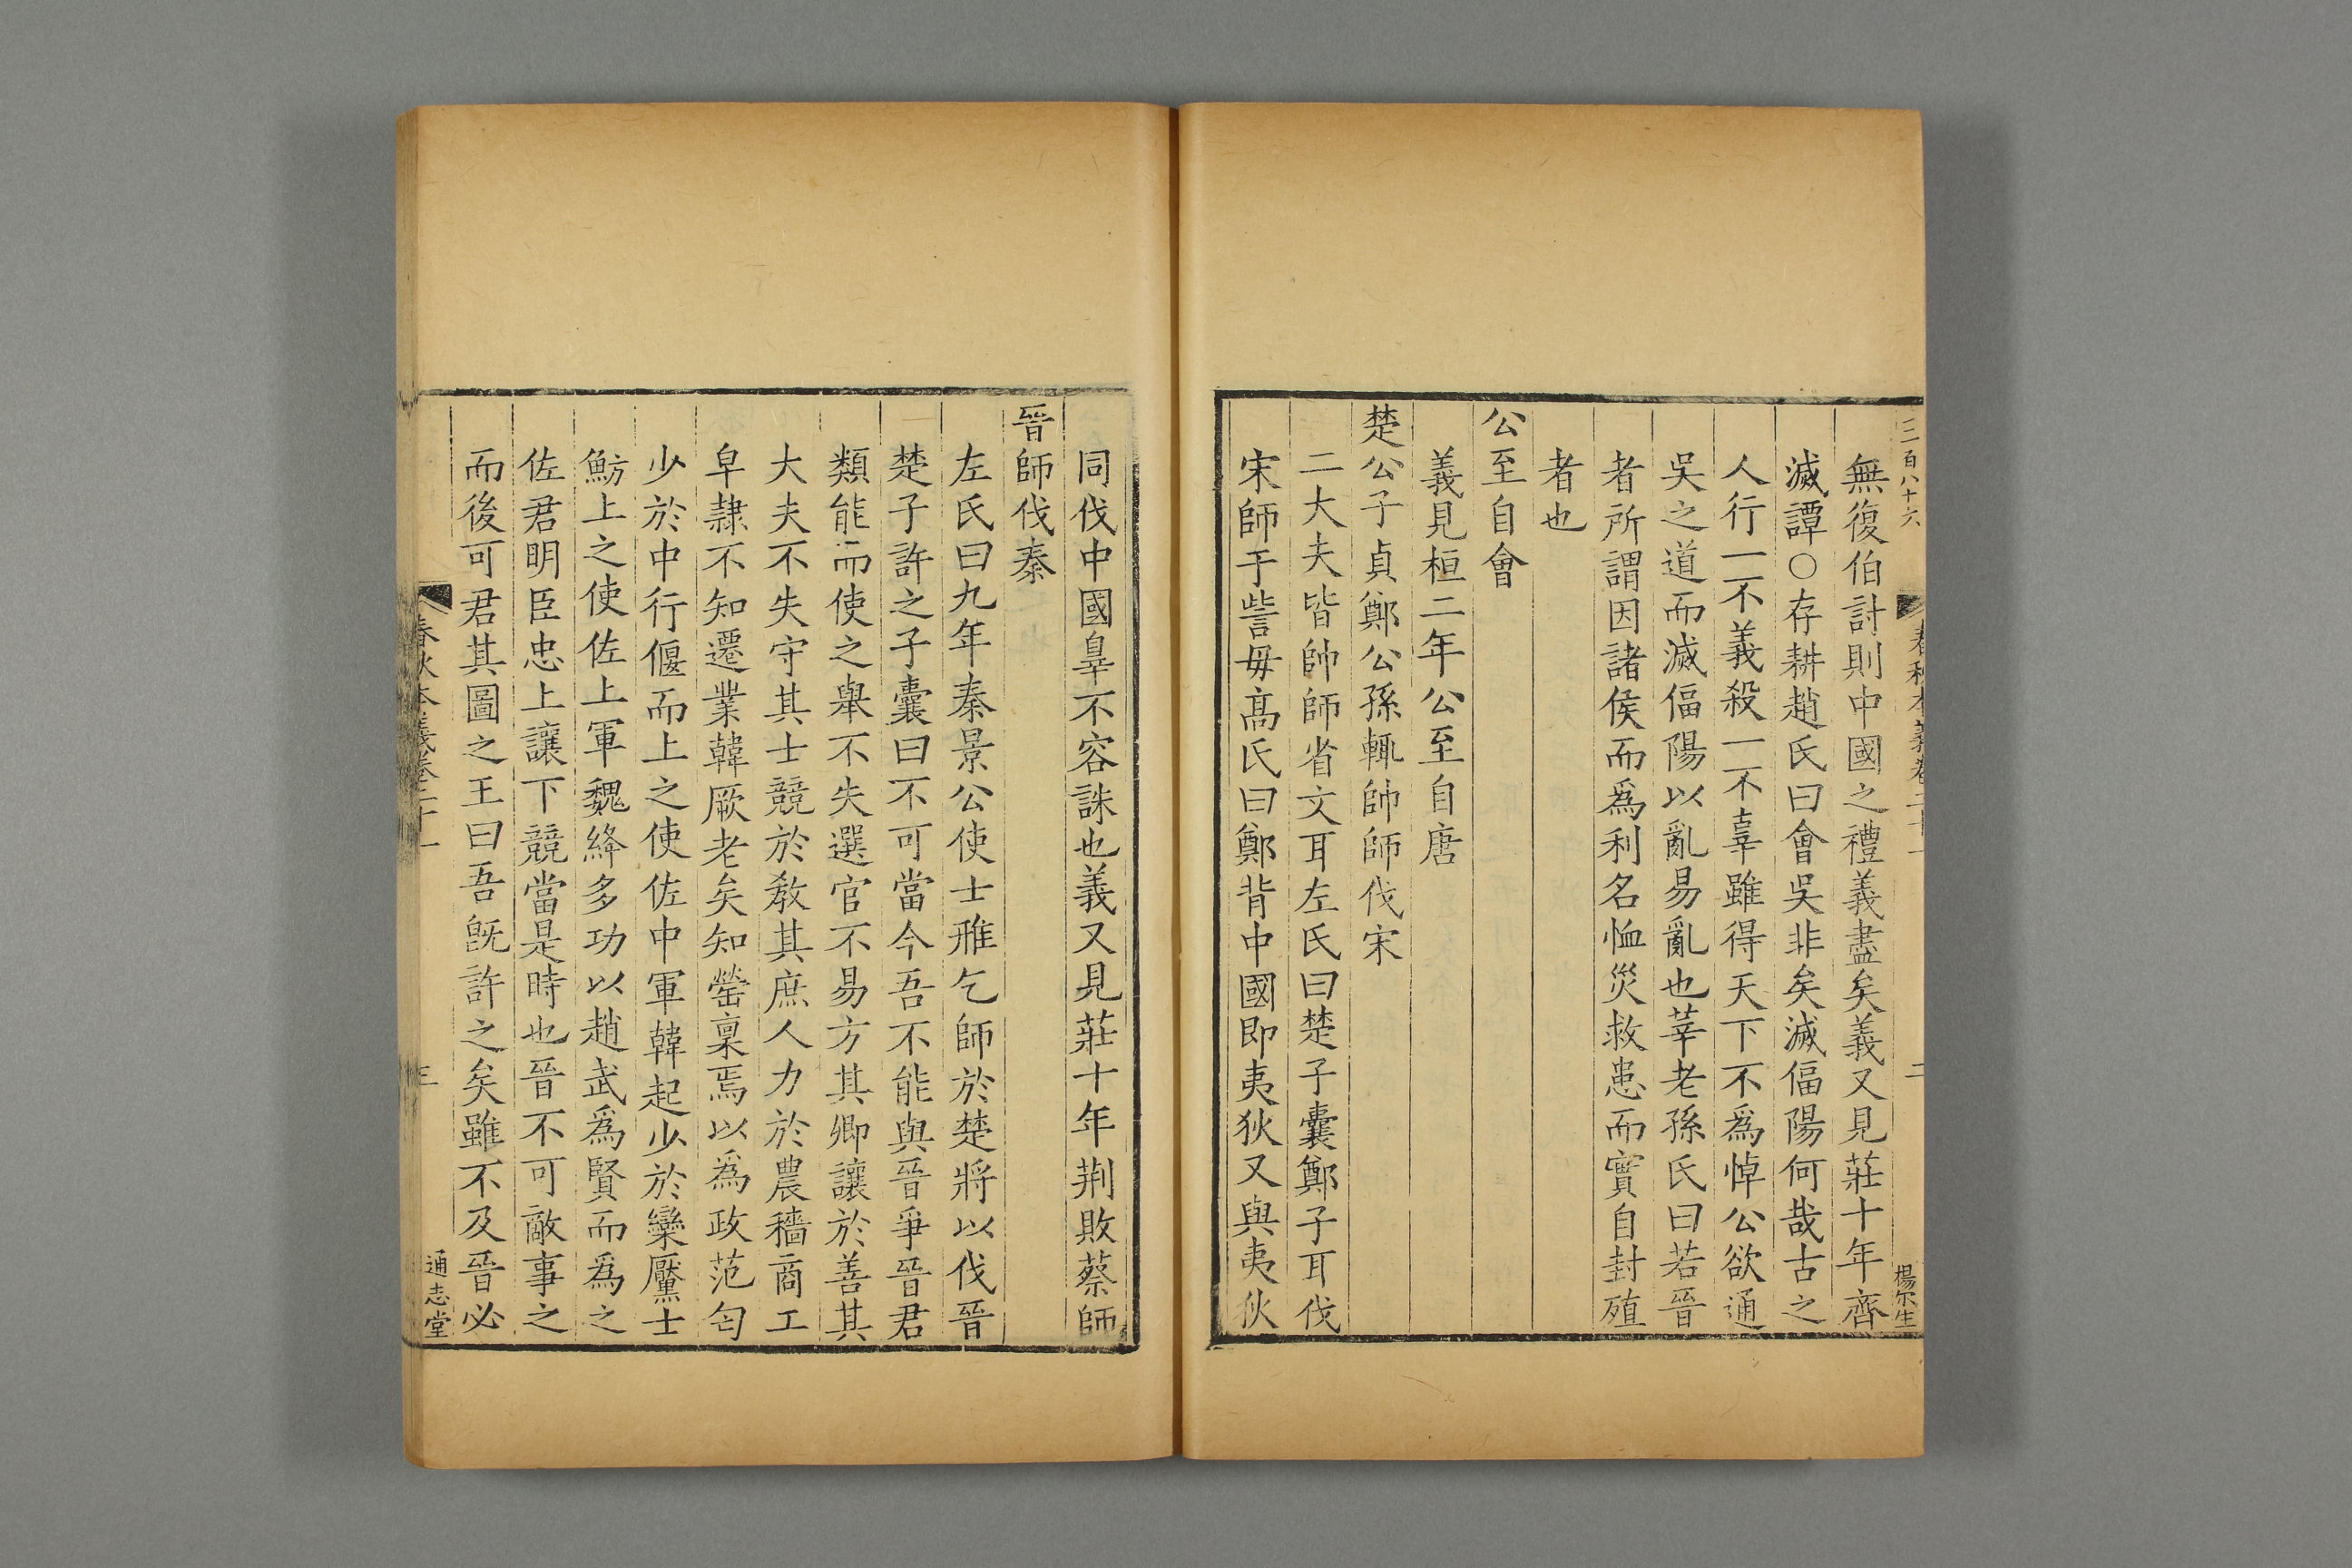 三百八十六
春秋本義卷二十一
二
楊尔生
無復伯討則中國之禮義盡矣義又見莊十年齊
滅譚○存耕趙氏曰會吳非矣滅偪陽何哉古之
人行一不義殺一不辜雖得天下不爲悼公欲通
吳之道而滅偪陽以亂易亂也莘老孫氏曰若晉
者所謂因諸侯而爲利名恤災救患而實自封殖
者也
公至自會
義見桓二年公至自唐
楚公子貞鄭公孫輒帥師伐宋
二大夫皆帥師省文耳左氏曰楚子囊鄭子耳伐
宋師于訾毋高氏曰鄭背中國即夷狄又與夷狄
同伐中國辠不容誅也義又見莊十年荆敗蔡師
晉師伐秦
左氏曰九年秦景公使士雃乞師於楚將以伐晉
楚子許之子囊曰不可當今吾不能與晉爭晉君
類能而使之舉不失選官不易方其卿讓於善其
大夫不失守其士競於教其庶人力於農穡商工
皁隷不知遷業韓厥老矣知罃稟焉以爲政范匄
少於中行偃而上之使佐中軍韓起少於欒黶士
魴上之使佐上軍魏絳多功以趙武爲賢而爲之
佐君明臣忠上讓下競當是時也晉不可敵事之
而後可君其圖之王曰吾旣許之矣雖不及晉必
春秋本義卷二十一
三
通志堂